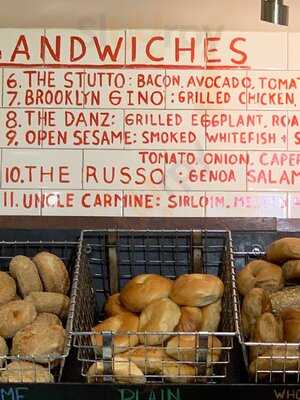 ANDWICHES
6. THE STUTTO: BACON, AVOCADO, TOMAT
7. BROOKLYN GINO: GRILLED CHICKEN,
8. THE DANZ: GRILLED EGGPLANT, ROA
9. OPEN SESAME: SMOKED WHITEFISH & S
TOMATO, ONION, CAPER
10. THE RUSSO: GENOA SALAM
11. UNCLE CARMINE: SIRLOIN,
PLAIN
WHO